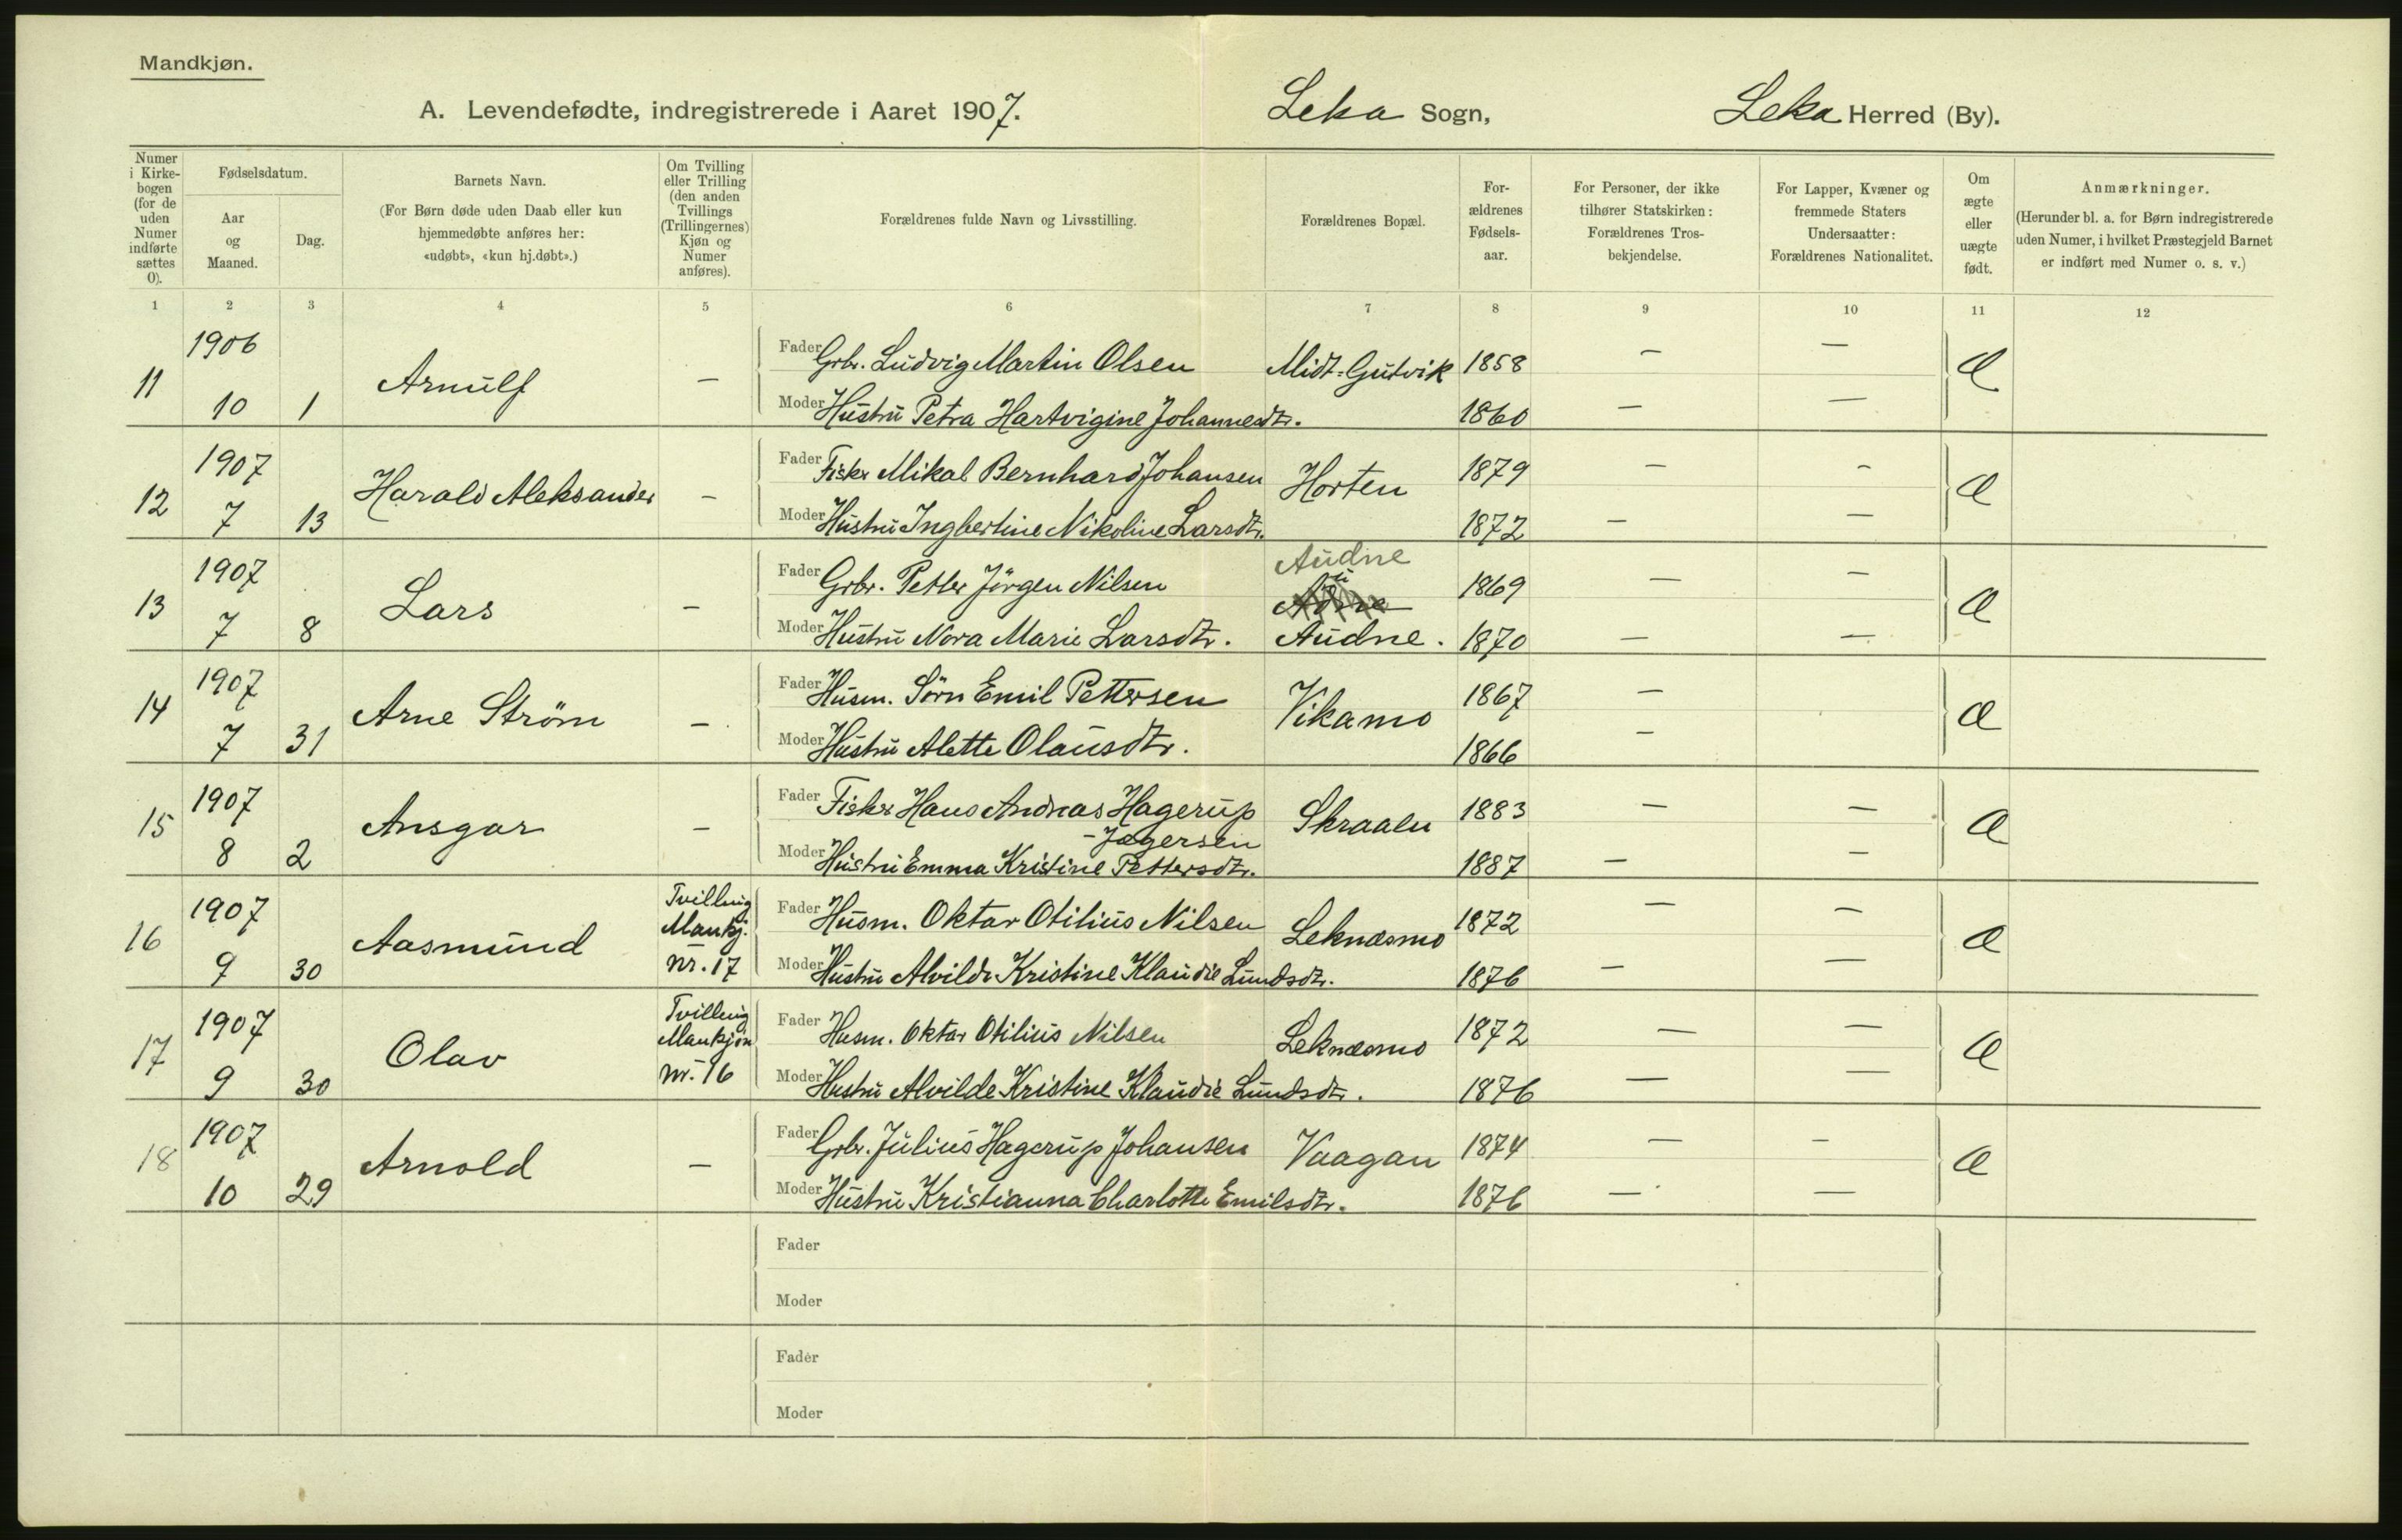 Mandkjøn.
A. Levendefødte, indregistrerede i Aaret 1907. Leka Sogn, Leka Herred (By).
Numer i Kirkebogen (for de uden Numer indførte sættes 0).
Fødselsdatum.
Aar og Maaned.
Dag.
Barnets Navn.
(For Børn døde uden Daab eller kun hjemmedøbte anføres her: «udøbt», «kun hj.døbt».)
Om Tvilling eller Trilling (den anden Tvillings (Trillingernes) Kjøn og Numer anføres).
Forældrenes fulde Navn og Livsstilling.
Forældrenes Bopæl.
Forældrenes Fødselsaar.
For Personer, der ikke tilhører Statskirken: Forældrenes Trosbekjendelse.
For Lapper, Kvæner og fremmede Staters Undersaatter: Forældrenes Nationalitet.
Om ægte eller uægte født.
Anmærkninger.
(Herunder bl. a. for Børn indregistrerede uden Numer, i hvilket Præstegjeld Barnet er indført med Numer o. s. v.)
1 2 3 4 5 6 7 8 9 10 11 12
11 1906 10 1 Arnulf — Fader Grbr. Ludvig Martin Olsen Midt-Gutvik 1858 — — Æ
Moder Hustru Petra Hartvigine Johannesdtr. 1860 — —
12 1907 7 13 Harald Aleksander — Fader Fisker Mikal Bernhard Johansen Horten 1879 — — Æ
Moder Hustru Ingbertine Nikoline Larsdtr. 1872 — —
13 1907 7 8 Lars — Fader Grbr. Petter Jörgen Nilsen Audne 1869 — — Æ
Moder Hustru Nora Marie Larsdtr. Audne. 1870 — —
14 1907 7 31 Arne Ström — Fader Husm. Sörn Emil Pettersen Vikamo 1867 — Æ
Moder Hustru Alette Olausdtr. 1866 —
15 1907 8 2 Ansgar — Fader Fisker Hans Andreas Hagerup Skraalen 1883 — — Æ
- Jægersen
Moder Hustru Emma Kristine Pettersdtr. 1887 — —
16 1907 9 30 Aasmund Tvilling Mankj. nr. 17 Fader Husm. Oktav Otilius Nilsen Leknesmo 1872 — — Æ
Moder Hustru Alvilde Kristine Klaudie Lundsdtr. 1876 — —
17 1907 9 30 Olav Tvilling Mankjön nr. 16 Fader Husm. Oktav Otilius Nilsen Leknesmo 1872 — — Æ
Moder Hustru Alvilde Kristine Klaudie Lundsdtr. 1876 — —
18 1907 10 29 Arnold — Fader Grbr. Julius Hagerup Johansen Vaagan 1874 — — Æ
Moder Hustru Kristianna Charlotte Emilsdtr. 1876 — —
Fader
Moder
Fader
Moder